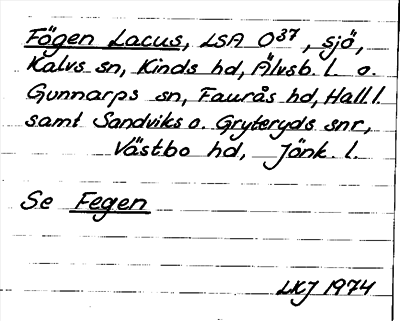 Fögen Lacus, LSA O37, sjö,
Kalvs sn, Kinds hd, Älvsb. l. o.
Gunnarps sn, Faurås hd, Hall. l.
samt Sandviks o. Gryteryds snr,
Västbo hd, Jönk. l.
Se Fegen
LKJ 1974